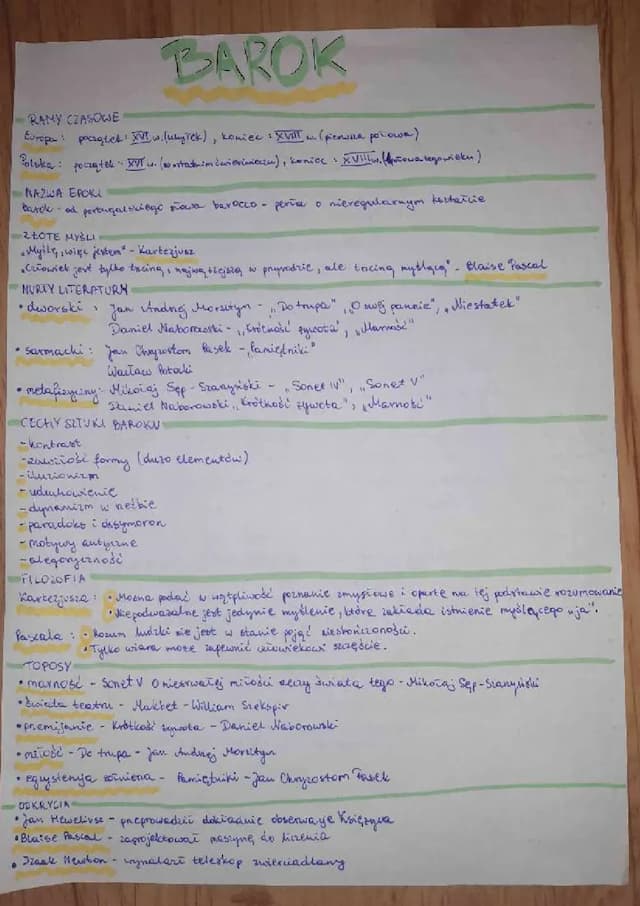 BAROK
RAMY CZASOWE
Europa: początek: XVI w. (użytek), koniec: XVIII w. (pierwsza połowa)
Polska: początek: XVI w. (w ostatnim ćwierćwieczu), koniec: XVIII w.
NAZWA EPOKI
barok - od portugalskiego słowa barocco - perła o nieregularnym kształcie
ZŁOTE MYŚLI
"Myślę, więc jestem" - Kartezjusz
"Człowiek jest tylko trzciną, najwątlejszą w przyrodzie, ale trzciną myślącą" - Blaise Pascal
NURTY LITERATURY
• dworski: Jan Andrzej Morsztyn - "Do trupa", "O swej pannie", "Niestatek"
Daniel Naborowski - "Krótkość żywota", "Marność"
• sarmacki: Jan Chryzostom Pasek - "Pamiętniki"
Wacław Potocki
• metafizyczny: Mikołaj Sęp-Szarzyński - "Sonet IV", "Sonet V"
Daniel Naborowski "Krótkość żywota", "Marność"
CECHY SZTUKI BAROKU
- kontrast
- zawiłość formy (dużo elementów)
- iluzjonizm
- uduchowienie
- dynamizm w rzeźbie
- paradoks i oksymoron
- motywy antyczne
- alegoryczność
FILOZOFIA
Kartezjusza: • Można podać w wątpliwość poznanie zmysłowe i oparte na tej podstawie rozumowanie
• Niepodważalne jest jedynie myślenie, które zakłada istnienie myślącego "ja".
Pascala: • Rozum ludzki nie jest w stanie pojąć nieskończoności.
• Tylko wiara może zapewnić człowiekowi szczęście.
TOPOSY
• marność - Sonet V O nietrwałej miłości rzeczy świata tego - Mikołaj Sęp-Szarzyński
• świata teatru - Makbet - William Szekspir
• przemijanie - Krótkość żywota - Daniel Naborowski
• miłość - Do trupa - Jan Andrzej Morsztyn
• egzystencja żołnierza - Pamiętniki - Jan Chryzostom Pasek
ODKRYCIA
• Jan Heweliusz - przeprowadził dokładne obserwacje Księżyca
• Blaise Pascal - zaprojektował maszynę do liczenia
• Izaak Newton - wynalazł teleskop zwierciadlany